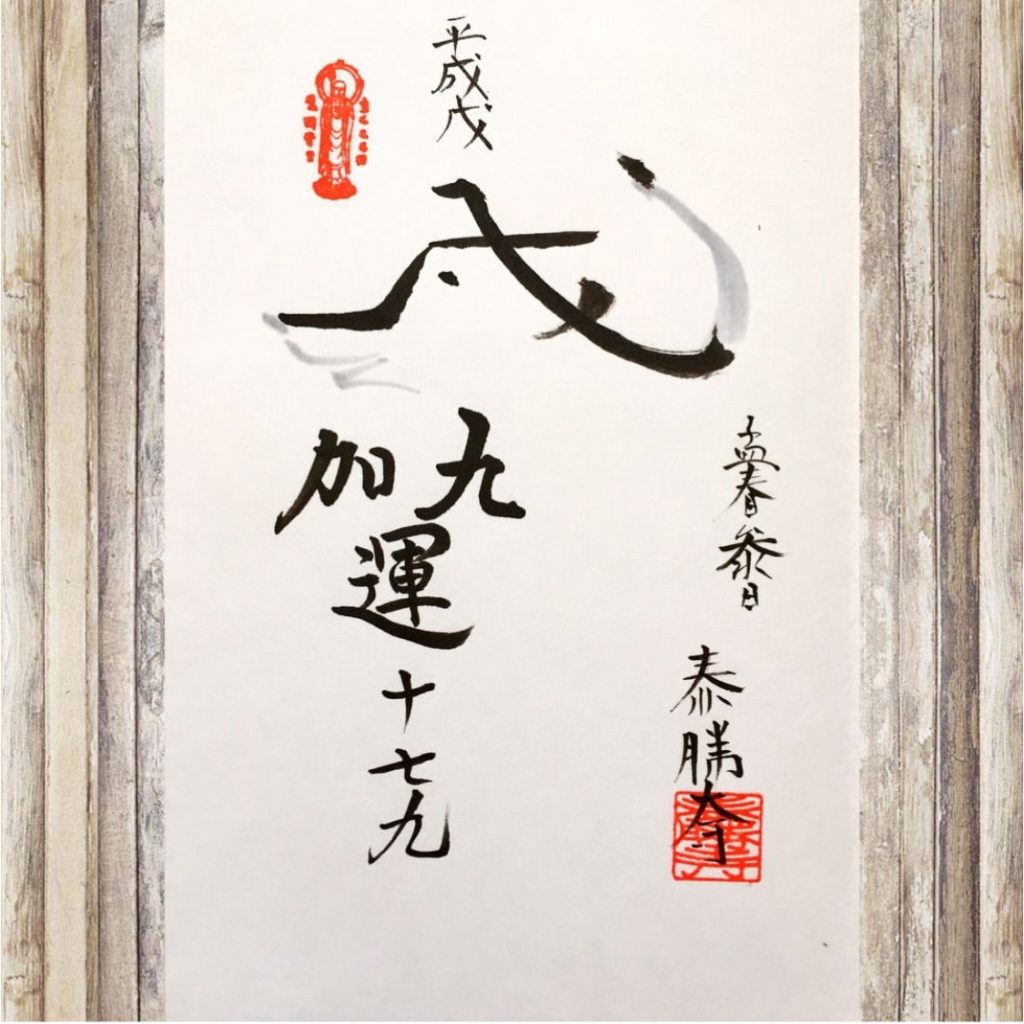 平成戊
戌
孟春参日
泰勝寺
九
加
運
十七九